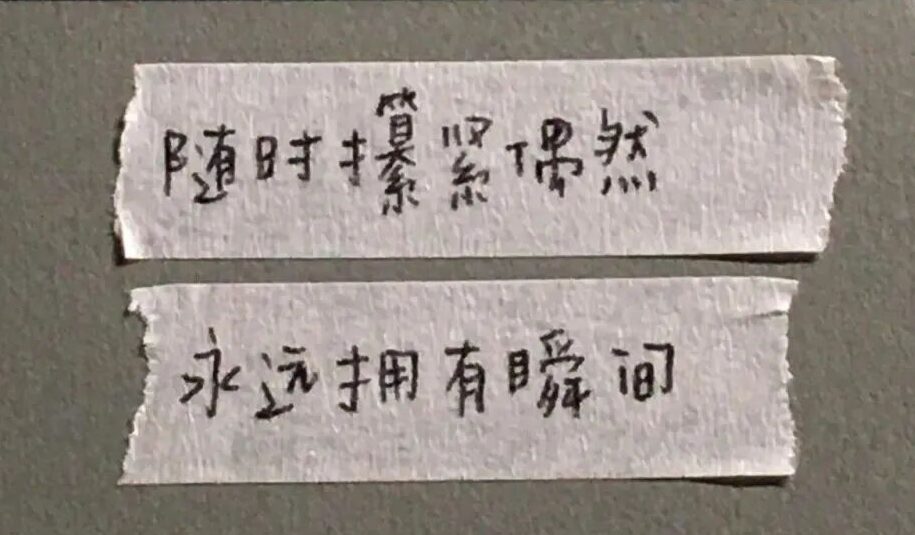 随时攥紧偶然
永远拥有瞬间